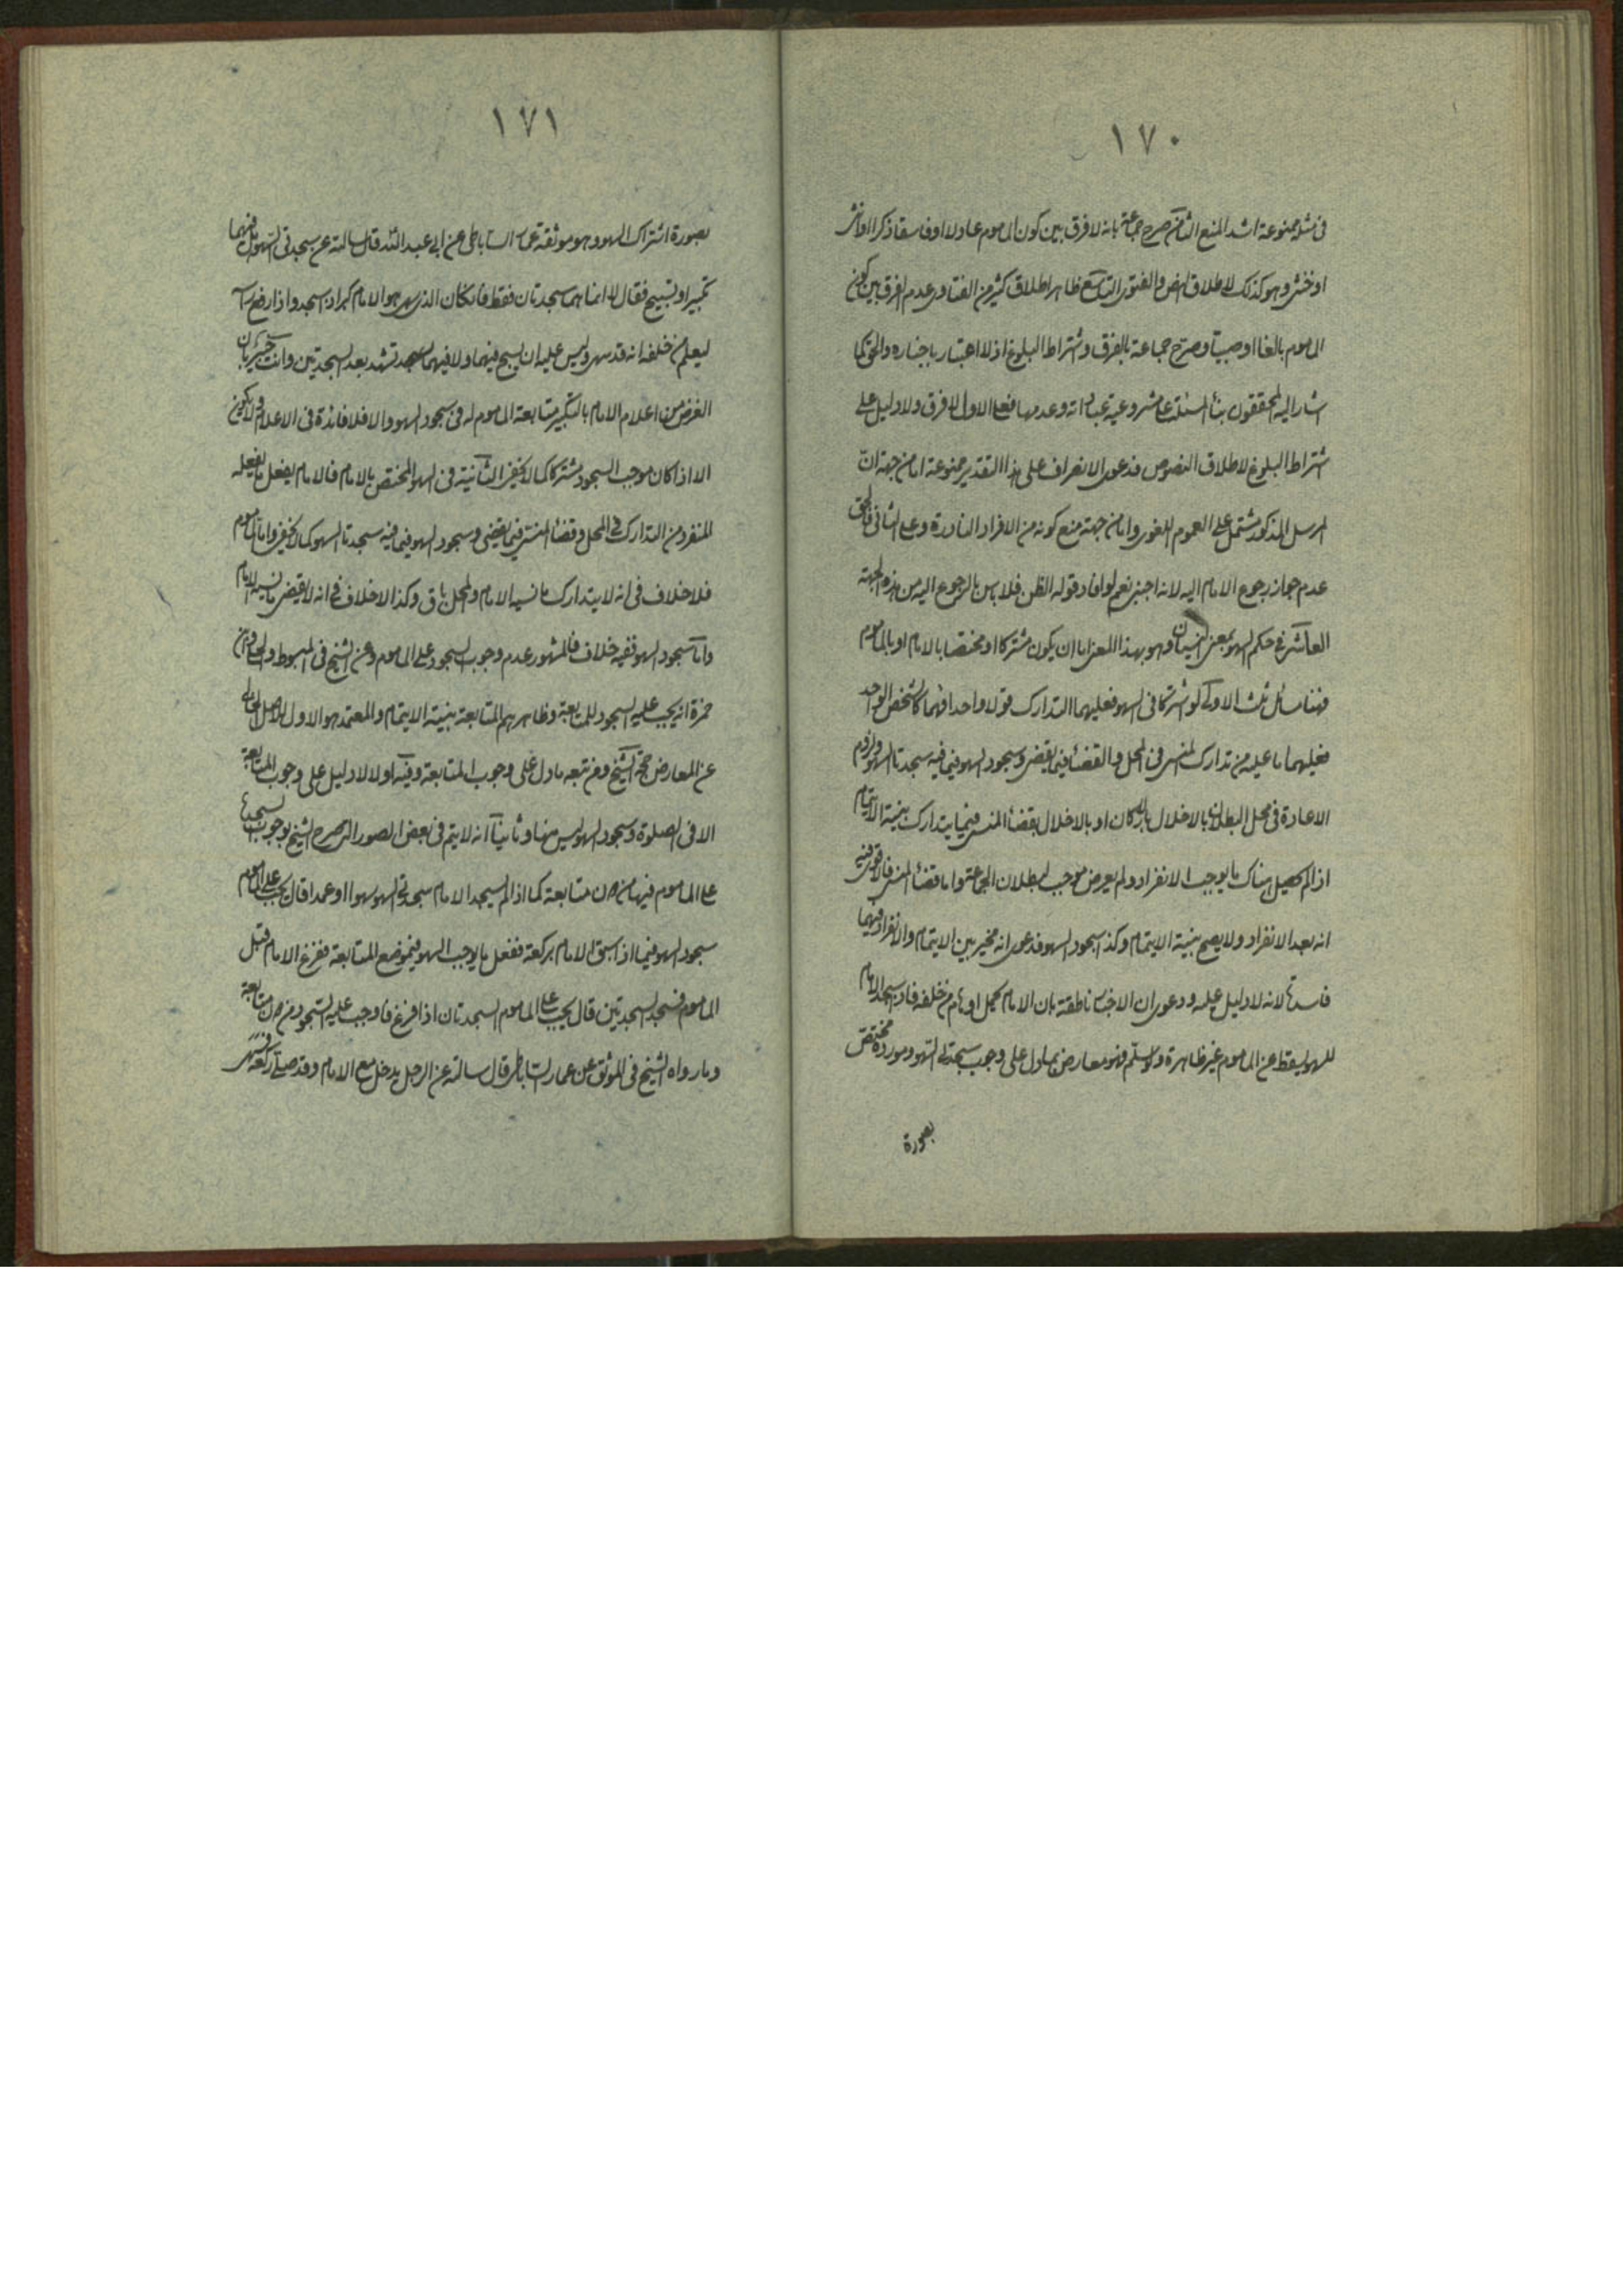 ١٧٠
فى مثله ممنوعة اشد المنع الثامن صرح جماعة بانه لا فرق بين كون الماموم عادلا او فاسقا ذكرا او انثى
او خنثى وهو كذلك لاطلاق النص والفتوى التاسع ظاهر اطلاق كثير من الفتاوى عدم الفرق بين كون
الماموم بالغا او صبيا وصرح جماعة بالفرق واشتراط البلوغ اذ لا اعتبار باخباره والحق كما
اشار اليه المحققون بناء المسئلة على مشروعية عباداته وعدمها فعلى الاول لا فرق ولا دليل على
اشتراط البلوغ لاطلاق النصوص فدعوى الانصراف على هذا التقدير ممنوعة اما من جهة ان
المرسل المذكور مشتمل على العموم اللغوى واما من جهة منع كونه من الافراد النادرة وعلى الثانى فالحق
عدم جواز رجوع الامام اليه لانه اجنبى نعم لو افاد قوله الظن فلا باس بالرجوع اليه من هذه الجهة
العاشر فى حكم السهو بمعنى النسيان وهو بهذا المعنى اما ان يكون مشتركا او مختصا بالامام او بالماموم
فهنا مسائل ثلث الاولى لو اشتركا فى السهو فعليهما التدارك قولا واحدا فهما كالشخص الواحد
فعليهما ما عليه من تدارك المنسى فى المحل والقضاء فيما يقضى وسجود السهو فيما فيه سجدتا السهو ولزوم
الاعادة فى محل البطلان بالاخلال بالاركان او بالاخلال بقضاء المنسى فيما يتدارك بنية الايتمام
اذا لم يحصل هناك ما يوجب الانفراد ولم يعرض موجب لبطلان الجماعة واما قضاء المنسى فالاقوى فيه
انه بعد الانفراد ولا يصح بنية الايتمام وكذا سجود السهو فدعوى انه مخير بين الايتمام والانفراد فيهما
فاسدة لانه لا دليل عليه ودعوى ان الاخبار ناطقة بان الامام يحمل اوهام من خلفه فاذا سجد الامام
للسهو يسقط عن الماموم غير ظاهرة ولو سلم فهو معارض بما دل على وجوب سجدتى السهو ومورده مختص
بصورة
١٧١
بصورة اشتراك السهو وهو موثقة عمار الساباطى عن ابى عبد الله قال سالته عن سجدتى السهو هل فيهما
تكبير او تسبيح فقال لا انما هما سجدتان فقط فان كان الذى سهى هو الامام كبر اذا سجد واذا رفع راسه
ليعلم من خلفه انه قد سهى وليس عليه ان يسبح فيهما ولا فيهما تشهد بعد السجدتين وانت خبير بان
الغرض من اعلام الامام بالتكبير متابعة الماموم له فى سجود السهو والا فلا فائدة فى الاعلام ولا يكون
الا اذا كان موجب السجود مشتركا كما لا يخفى الثانية فى السهو المختص بالامام فالامام يفعل ما يفعله
المنفرد من التدارك فى المحل وقضاء المنسى فيما يقضى وسجود السهو فيما فيه سجدتا السهو كما لا يخفى واما الماموم
فلا خلاف فى انه لا يتدارك ما نسيه الامام والمحل باق وكذا لا خلاف فى انه لا يقضى ما نسيه الامام
واما سجود السهو ففيه خلاف فالمشهور عدم وجوب السجود على الماموم وعن الشيخ فى المبسوط والحلى وابن
حمزة انه يجب عليه السجود للمتابعة وظاهرهم المتابعة بنية الايتمام والمعتمد هو الاول للاصل الخالى
عن المعارض حجة الشيخ ومن تبعه ما دل على وجوب المتابعة وفيه اولا لا دليل على وجوب المتابعة
الا فى الصلوة وسجود السهو ليس منها وثانيا انه لا يتم فى بعض الصور التى صرح الشيخ بوجوب السجدة
على الماموم فيها من دون متابعة كما اذا لم يسجد الامام سجدتى السهو سهوا او عمدا قال يجب على الماموم
سجود السهو فيما اذا سبق الامام بركعة ففعل ما يوجب السهو فيموضع المتابعة ففرغ الامام قبل
الماموم فسجد السجدتين قال يجب على الماموم السجدتان اذا فرغ فاوجب عليه السجود من دون متابعة
وما رواه الشيخ فى الموثق عن عمار الساباطى قال سالته عن الرجل يدخل مع الامام وقد صلى ركعة